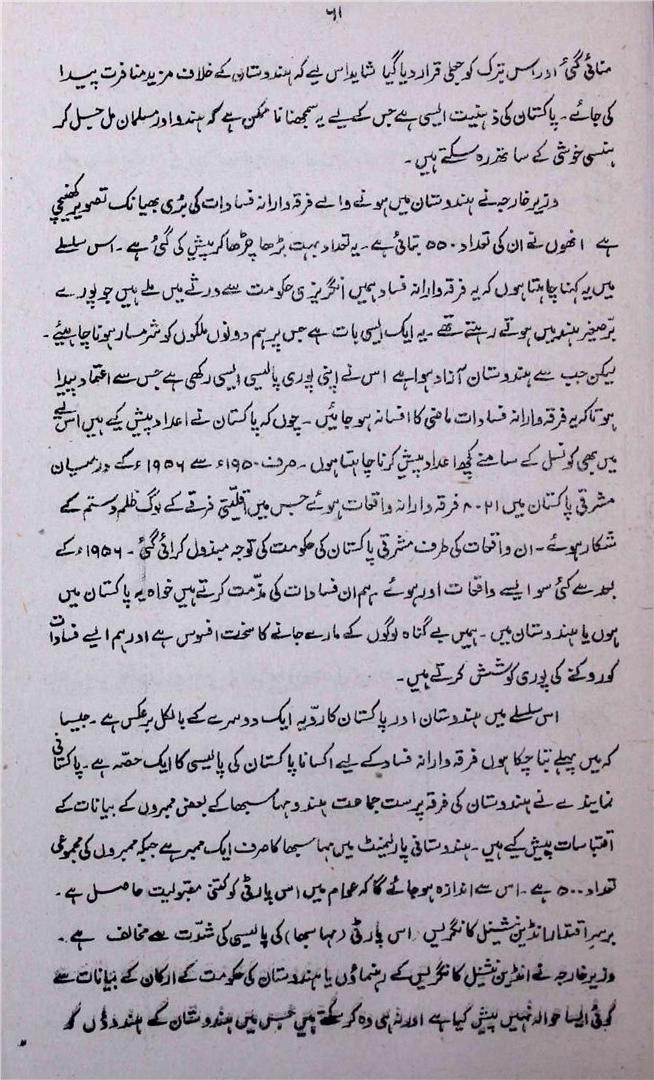 ۶۱
منائی گئی اور اس تبرک کو جعلی قرار دیا گیا شاید اس لیے کہ ہندوستان کے خلاف مزید منافرت پیدا
کی جائے۔ پاکستان کی ذہنیت ایسی ہے جس کے لیے یہ سمجھنا ناممکن ہے کہ ہندو اور مسلمان مل جل کر
ہنسی خوشی کے ساتھ رہ سکتے ہیں۔
وزیر خارجہ نے ہندوستان میں ہونے والے فرقہ وارانہ فسادات کی بڑی بھیانک تصویر کھینچی
ہے انھوں نے ان کی تعداد ۵۵۰ بتائی ہے۔ یہ تعداد بہت بڑھا چڑھا کر پیش کی گئی ہے۔ اس سلسلے
میں یہ کہنا چاہتا ہوں کہ یہ فرقہ وارانہ فساد ہمیں انگریزی حکومت سے ورثے میں ملے ہیں جو پورے
برّصغیر ہند میں ہوتے رہتے تھے۔ یہ ایک ایسی بات ہے جس پر ہم دونوں ملکوں کو شرمسار ہونا چاہیئے۔
لیکن جب سے ہندوستان آزاد ہوا ہے اس نے اپنی پوری پالیسی ایسی رکھی ہے جس سے اعتماد پیدا
ہو تاکہ یہ فرقہ وارانہ فسادات ماضی کا افسانہ ہو جائیں۔ چوں کہ پاکستان نے اعداد پیش کیے ہیں اس لیے
میں بھی کونسل کے سامنے کچھ اعداد پیش کرنا چاہتا ہوں۔ صرف ۱۹۵۰ء سے ۱۹۵۶ء کے درمیان
مشرقی پاکستان میں ۸۰۲۱ فرقہ وارانہ واقعات ہوئے جس میں اقلیتی فرقے کے لوگ ظلم و ستم کے
شکار ہوئے۔ ان واقعات کی طرف مشرقی پاکستان کی حکومت کی توجہ مبذول کرائی گئی۔ ۱۹۵۶ء کے
بعد سے کئی سو ایسے واقعات اور ہوئے ہم ان فسادات کی مذّمت کرتے ہیں خواہ یہ پاکستان میں
ہوں یا ہندوستان میں۔ ہمیں بے گناہ لوگوں کے مارے جانے کا سخت افسوس ہے اور ہم ایسے فسادات
کو روکنے کی پوری کوشش کرتے ہیں۔
اس سلسلے میں ہندوستان اور پاکستان کا روّیہ ایک دوسرے کے بالکل برعکس ہے۔ جیسا
کہ میں پہلے بتا چکا ہوں فرقہ وارانہ فساد کے لیے اکسانا پاکستان کی پالیسی کا ایک حصّہ ہے۔ پاکستانی
نمایندے نے ہندوستان کی فرقہ پرست جماعت ہندو مہا سبھا کے بعض ممبروں کے بیانات کے
اقتباسات پیش کیے ہیں۔ ہندوستانی پارلیمنٹ میں مہا سبھا کا صرف ایک ممبر ہے جبکہ ممبروں کی مجموعی
تعداد ۵۰۰ ہے۔ اس سے اندازہ ہو جائے گا کہ عوام میں اس پارٹی کو کتنی مقبولیت حاصل ہے۔
برسر اقتدار انڈین نیشنل کانگریس اس پارٹی (مہا سبھا) کی پالیسی کی شدّت سے مخالف ہے۔
وزیر خارجہ نے انڈین نیشنل کانگریس کے رہنماؤں یا ہندوستان کی حکومت کے ارکان کے بیانات سے
کوئی ایسا حوالہ نہیں پیش کیا ہے اور نہ ہی وہ کر سکتے ہیں جس میں ہندوستان کے ہندوؤں کو